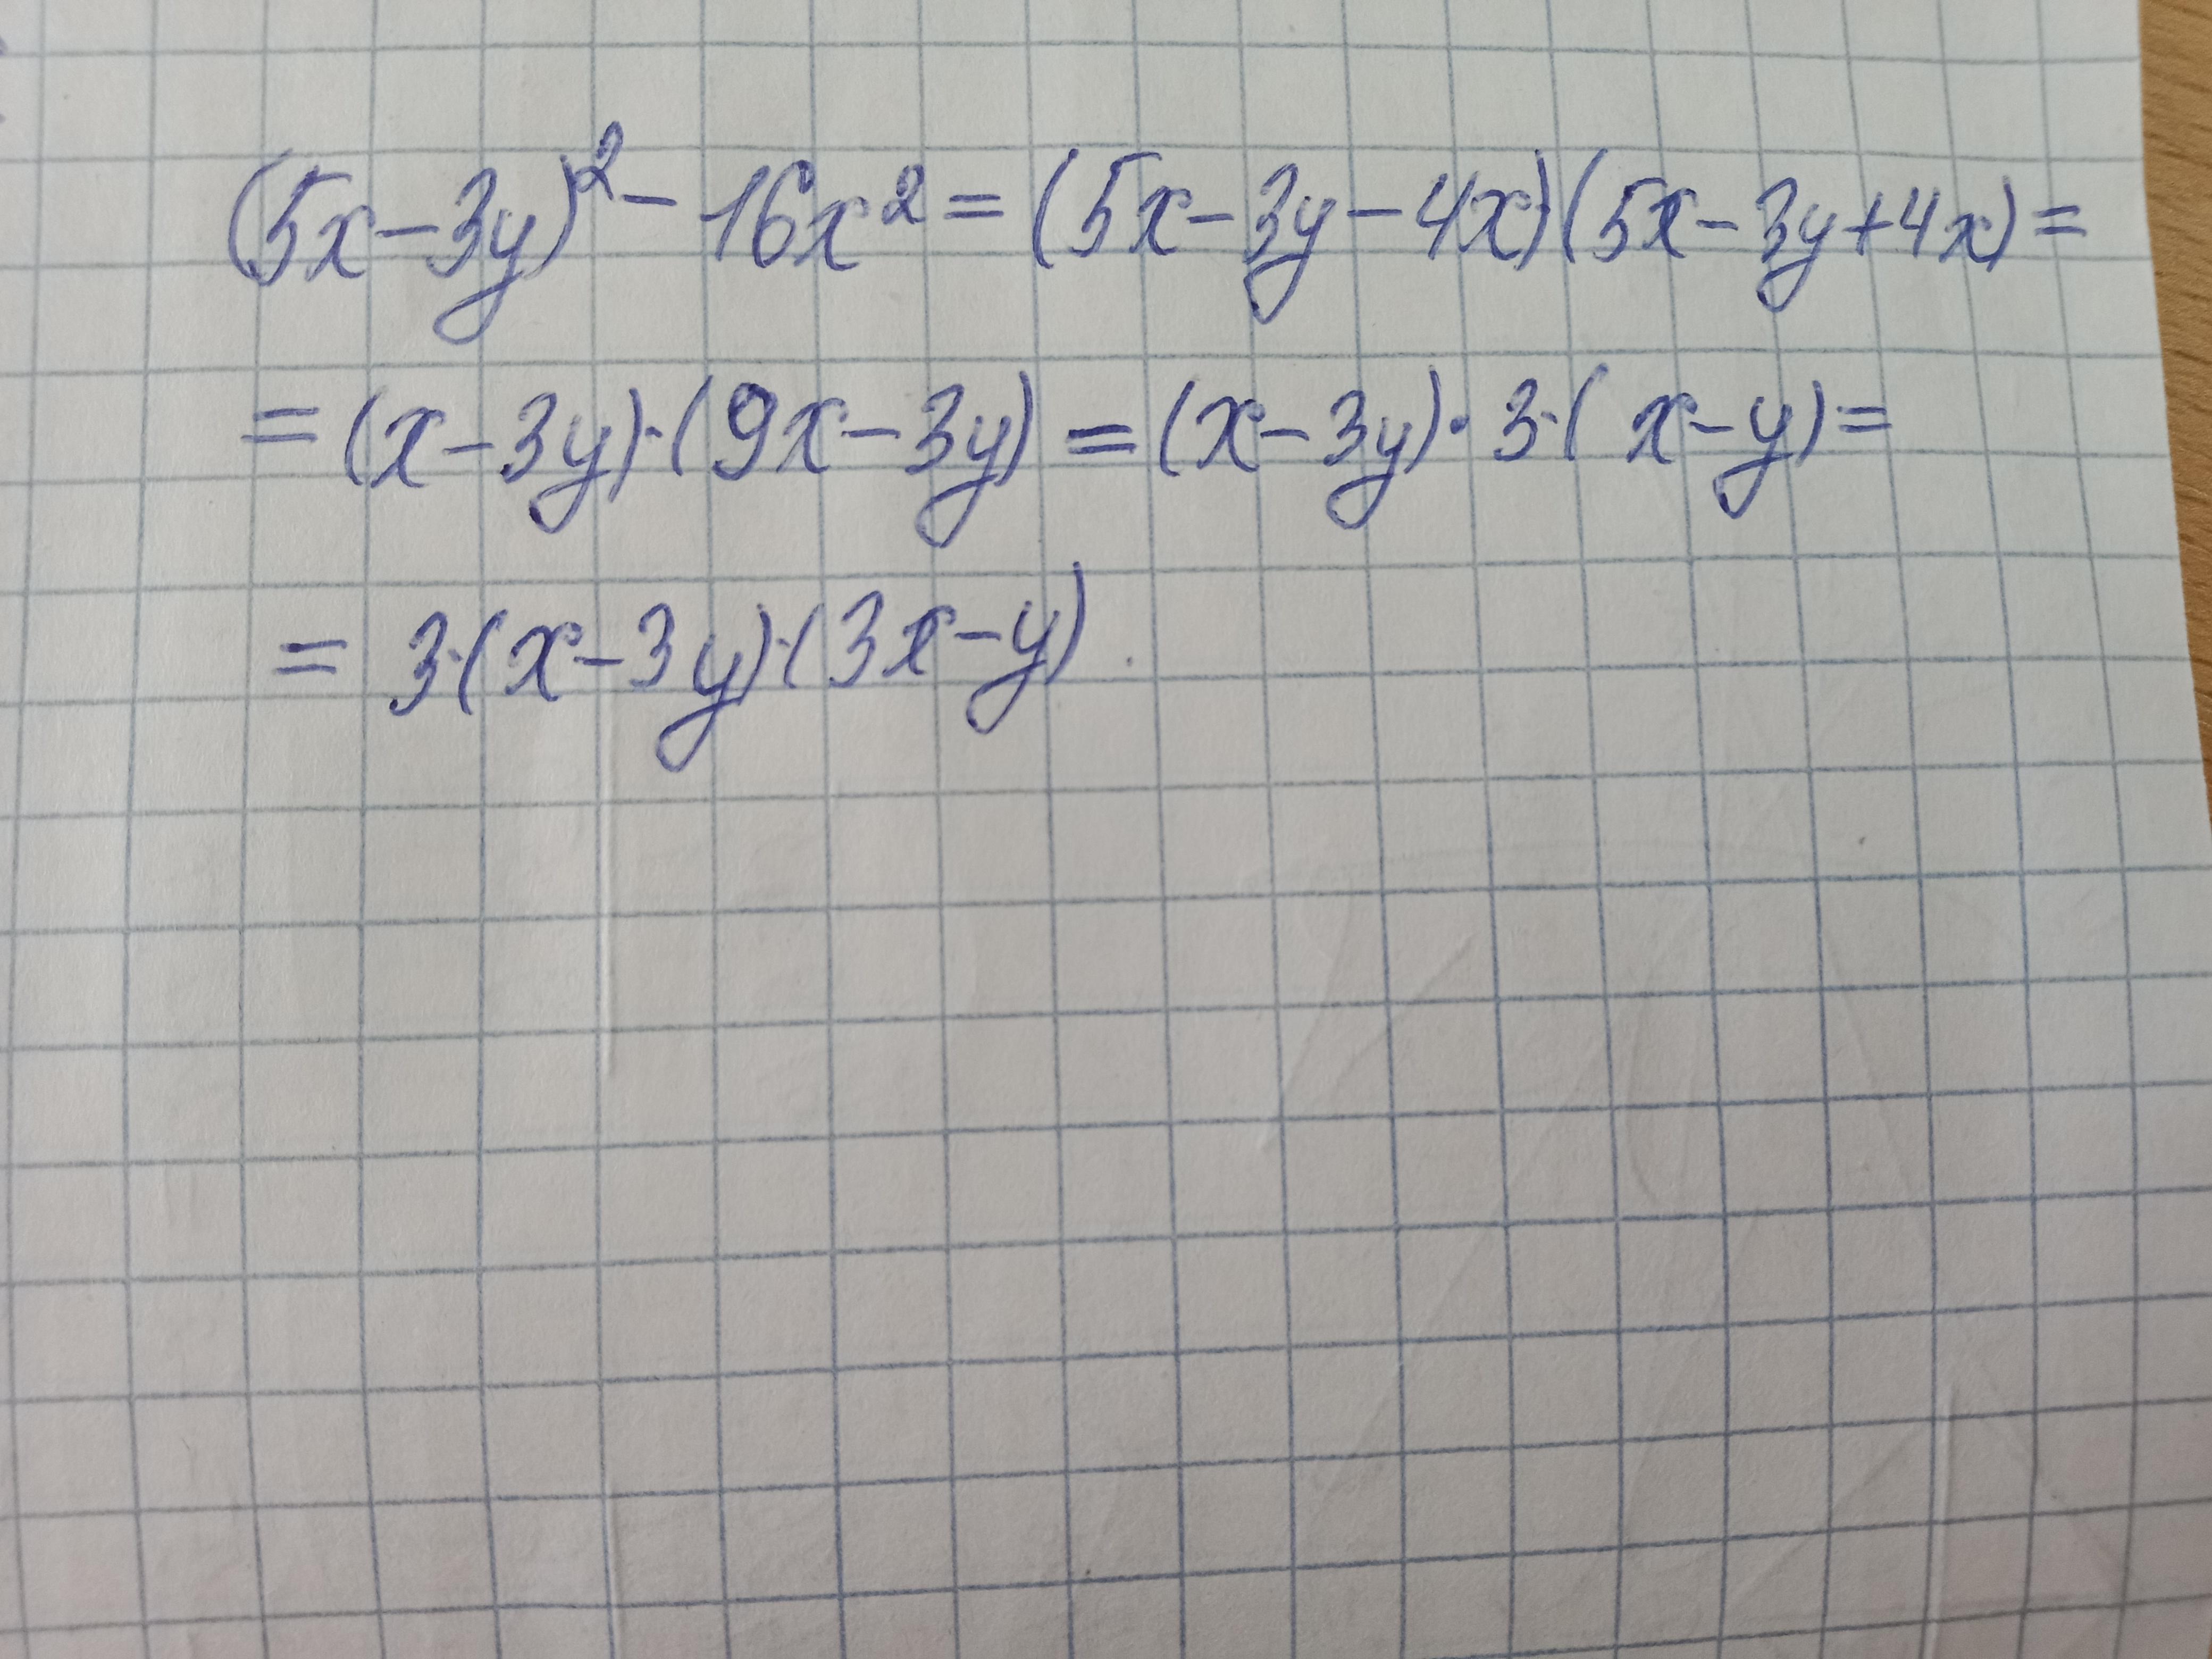 (5x-3y)²-16x²=(5x-3y-4x)·(5x-3y+4x)=
=(x-3y)·(9x-3y)=(x-3y)·3·(x-y)=
=3·(x-3y)·(3x-y).